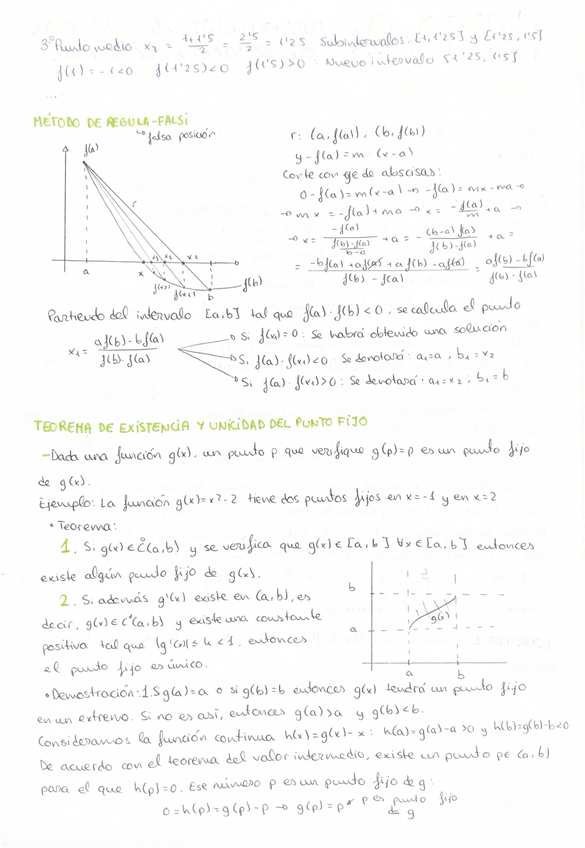 3º Punto medio: x₃ = 1+1'5/2 = 2'5/2 = 1'25 Subintervalos: [1,1'25] y [1'25, 1'5]
f(1) = -1 < 0 f(1'25) < 0 f(1'5) > 0 Nuevo intervalo [1'25, 1'5]
...
MÉTODO DE REGULA-FALSI
↳ falsa posición
f(a)
r
a
x
x₃
x₂
x₁
f(x₂)
f(x₁)
b
f(b)
r: (a, f(a)), (b, f(b))
y - f(a) = m · (x - a)
Corte con eje de abscisas:
0 - f(a) = m(x - a) → -f(a) = mx - ma →
→ mx = -f(a) + ma → x = -f(a)/m + a →
→ x = -f(a)/(f(b)-f(a)/b-a) + a = -(b-a) f(a)/f(b)-f(a) + a =
= -bf(a) + af(a) + af(b) - af(a)/f(b) - f(a) = af(b) - bf(a)/f(b) - f(a)
Partiendo del intervalo [a,b] tal que f(a) · f(b) < 0, se calcula el punto
x₁ = af(b) - bf(a)/f(b) - f(a)
→ Si f(x₁) = 0: Se habrá obtenido una solución
→ Si f(a) · f(x₁) < 0: Se denotará: a₁ = a ; b₁ = x₂
→ Si f(a) · f(x₁) > 0: Se denotará: a₁ = x₂ , b₁ = b
TEOREMA DE EXISTENCIA Y UNICIDAD DEL PUNTO FIJO
- Dada una función g(x), un punto p que verifique g(p) = p es un punto fijo
de g(x).
Ejemplo: La función g(x) = x² - 2 tiene dos puntos fijos en x = -1 y en x = 2
• Teorema:
1. Si g(x) ∈ C(a,b) y se verifica que g(x) ∈ [a,b] ∀x ∈ [a,b] entonces
existe algún punto fijo de g(x).
2. Si además g'(x) existe en (a,b), es
decir, g(x) ∈ C¹(a,b) y existe una constante
positiva tal que |g'(x)| ≤ k < 1, entonces
el punto fijo es único.
b
a
g(x)
a
b
• Demostración: 1. Si g(a) = a o si g(b) = b entonces g(x) tendrá un punto fijo
en un extremo. Si no es así, entonces g(a) > a y g(b) < b.
Consideramos la función continua h(x) = g(x) - x : h(a) = g(a) - a > 0 y h(b) = g(b) - b < 0
De acuerdo con el teorema del valor intermedio, existe un punto p ∈ (a,b)
para el que h(p) = 0. Ese número p es un punto fijo de g:
0 = h(p) = g(p) - p → g(p) = p p es punto fijo
de g